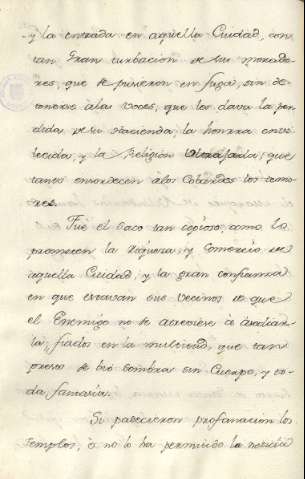 y la entrada en aquella Ciudad, con
tan gran turbacion de sus morado
res, que se pusieron en fuga, sin de
tenerse à las voces, que les dava la per
dida de su Hacienda, la honrra envi
lecida, y la Religion ultraxada; que
tanto ensordecen à los Cobardes los temo
res.
Fué el Saco tan copioso, como lo
prometen la riqueza, y Comercio de
aquella Ciudad, y la gran confianza
en que estavan sus Vecinos de que
el Enemigo no se atreviese à
la, fiados en la multitud, que tan
presto se hizo sombra sin Cuerpo, y to
da fantasia.
Si padecieron profanacion los
Templos, ò no lo ha permitido la noticia